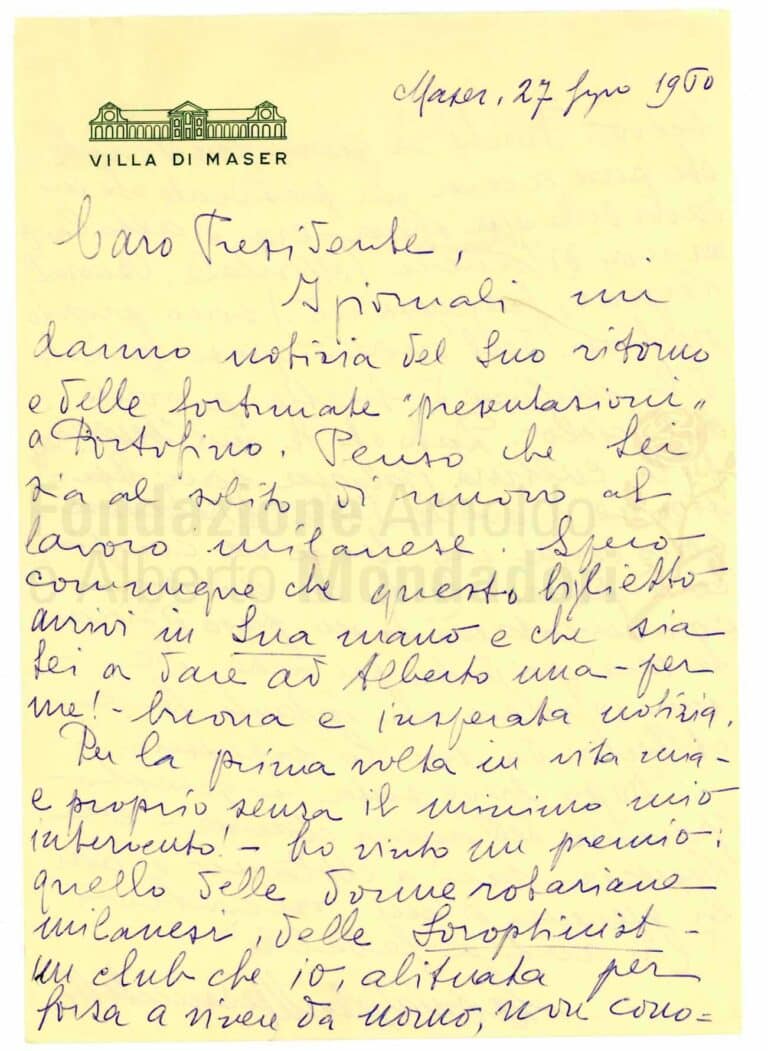 Maser, 27 1960
VILLA DI MASER
Caro Presidente,
I giornali mi
danno notizia del Suo ritorno
e delle fortunate "presentazioni"
a Portofino. Penso che Lei
sia al solito di nuovo al
lavoro milanese. Spero
comunque che questo biglietto
arrivi in Sua mano e che sia
Lei a dare ad Alberto una - per
me! - buona e insperata notizia.
Per la prima volta in vita mia -
e proprio senza il minimo mio
intervento! - ho vinto un premio:
quello delle donne rotariane
milanesi, delle Soroptimist -
un club che io, abituata per
forza a vivere da uomo, non cono=
Fondazione Arnoldo
e Alberto Mondadori